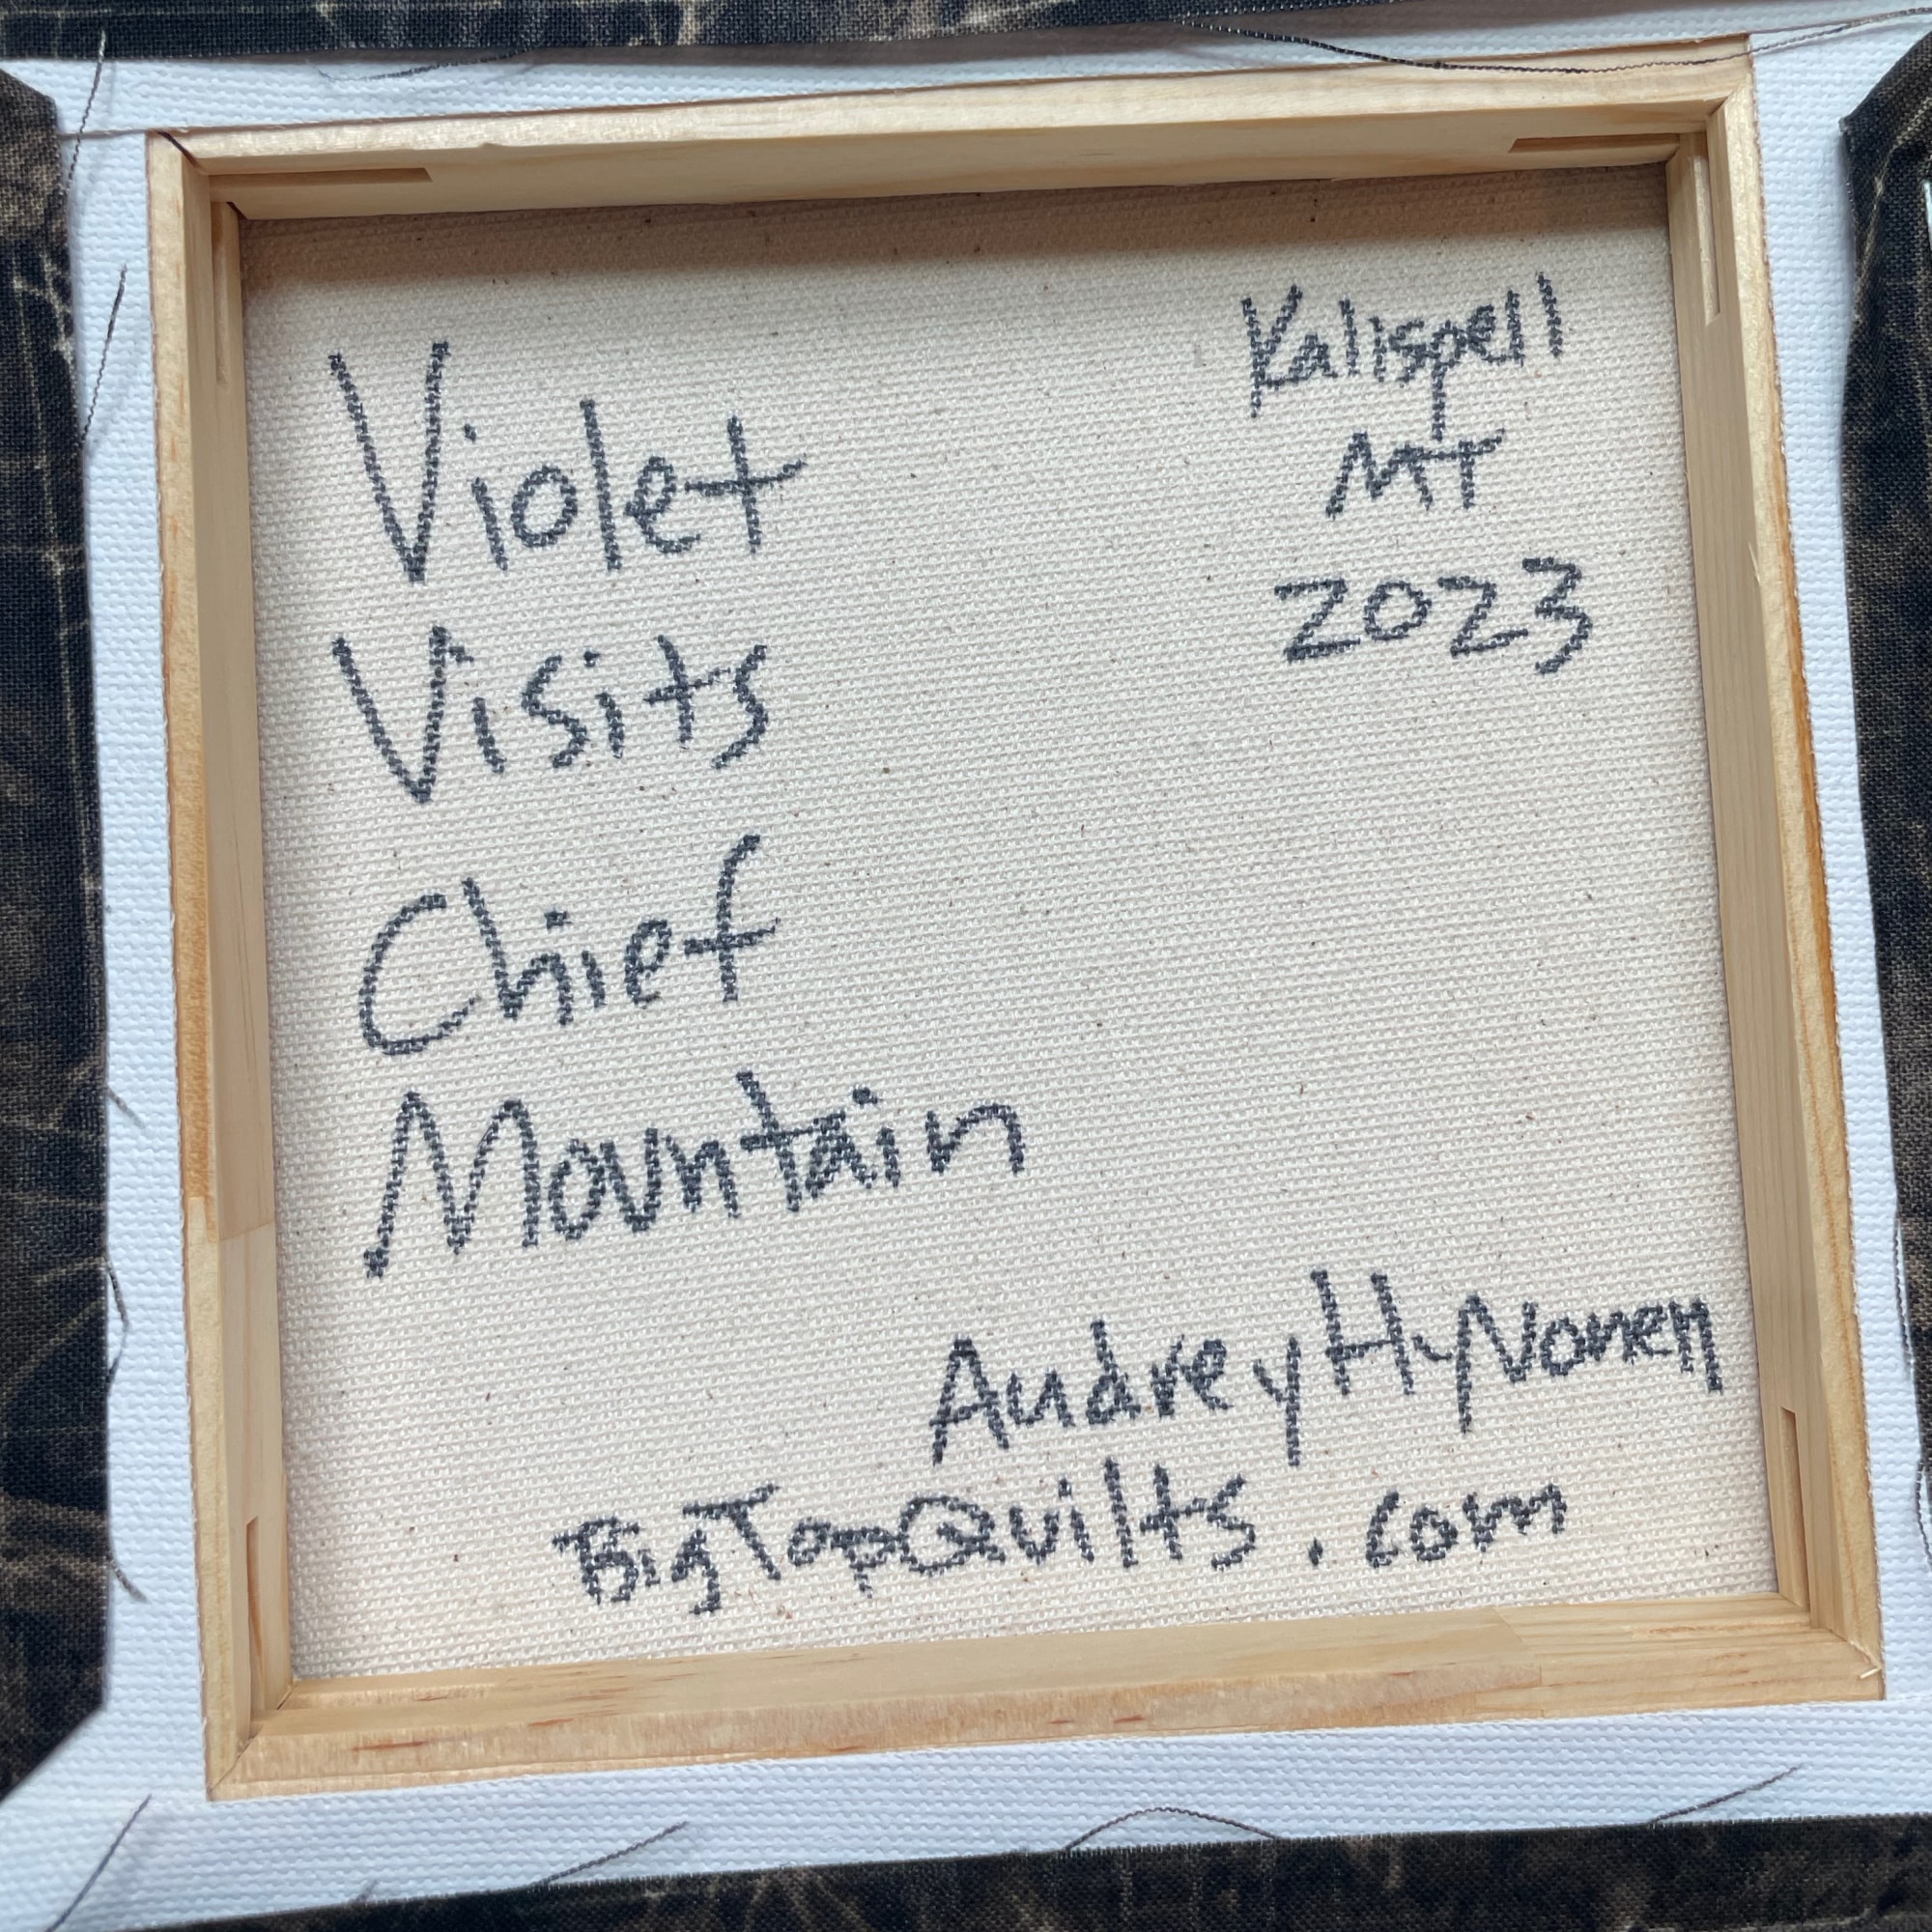 Violet
Visits
Chief
Mountain
Kalispell
MT
2023
Audrey HyNonen
BigTopQuilts.com